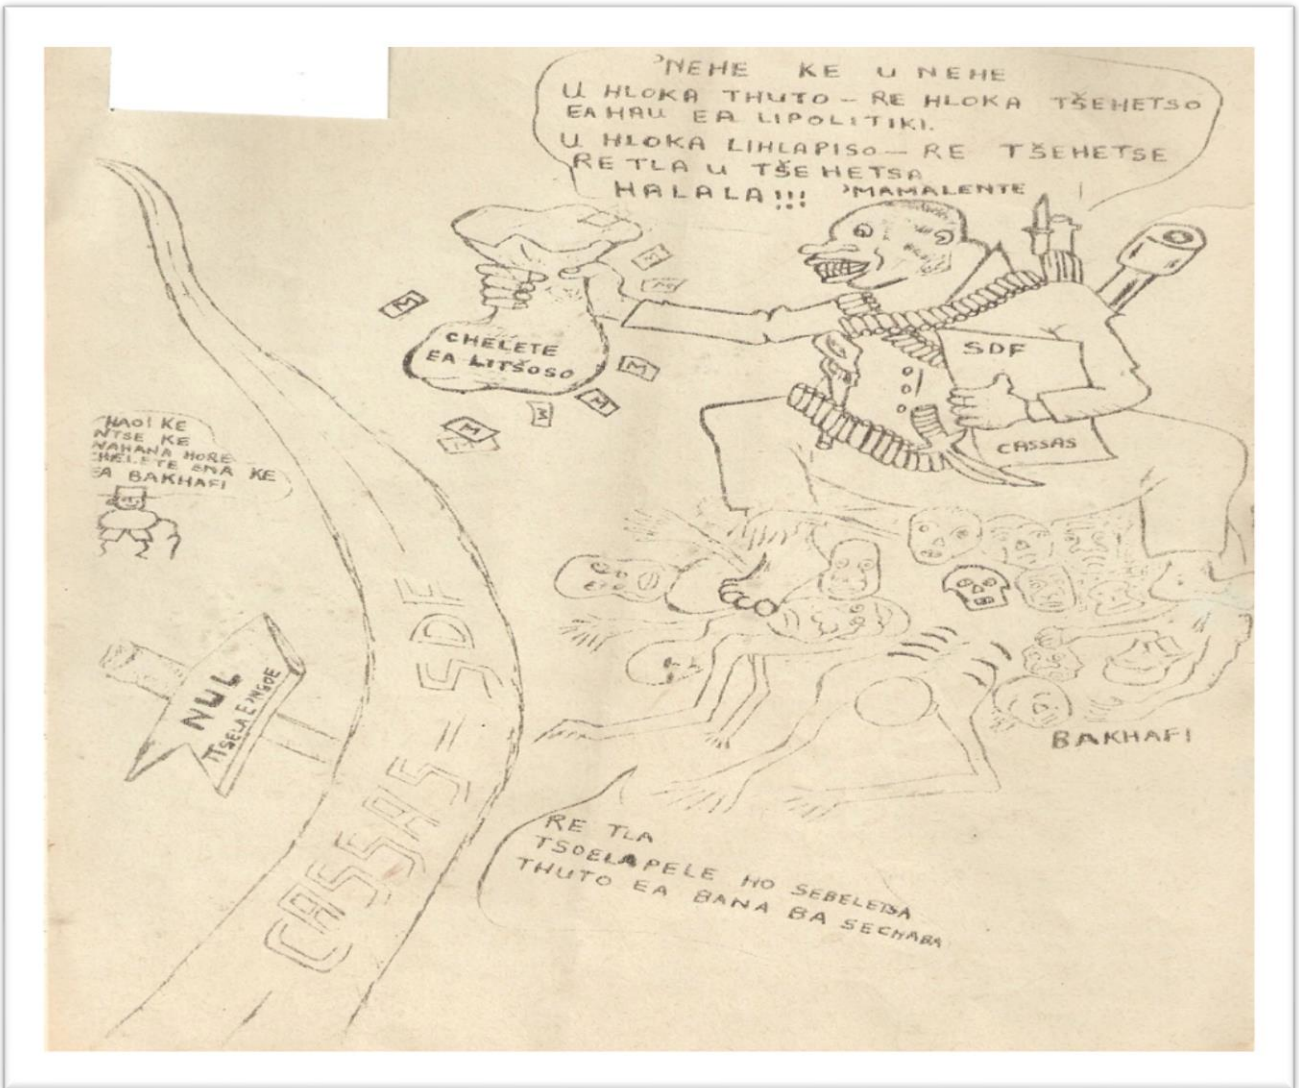 'NEHE KE U NEHE
U HLOKA THUTO – RE HLOKA TŠEHETSO
EA HAU EA LIPOLITIKI.
U HLOKA LIHLAPISO – RE TŠEHETSE
RE TLA U TŠEHETSA
HALALA!!! 'MAMALENTE
CHELETE
EA LITŠOSO
M
M
M
M
M
M
SDF
CASSAS
HAO! KE
NTSE KE
NAHANA HORE
CHELETE ENA KE
EA BAKHAFI
NUL
TSELA E 'NGOE
CASSAS = SDF
BAKHAFI
RE TLA
TSOELAPELE HO SEBELETSA
THUTO EA BANA BA SECHABA